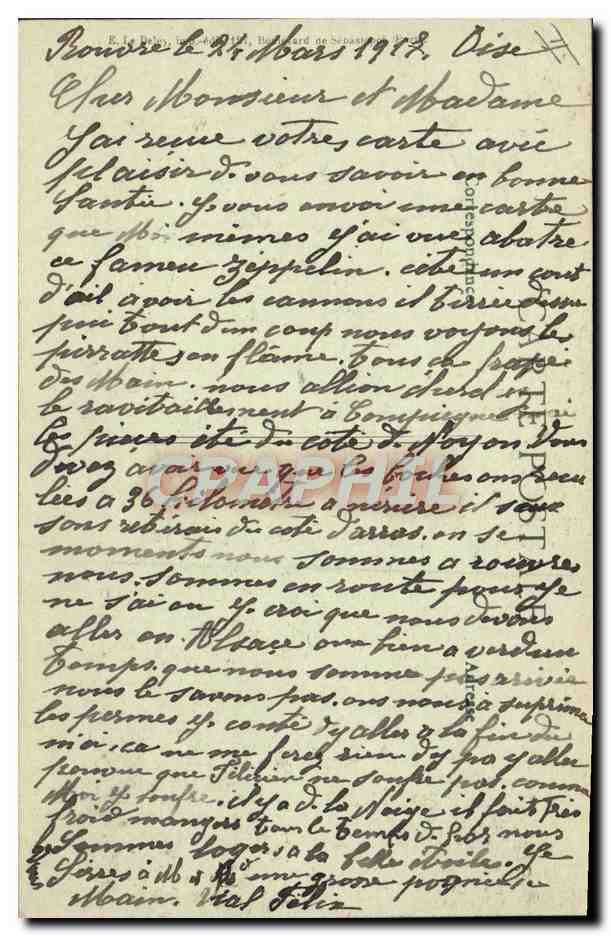 E. Le Deley, imp.-édit., 127, Boulevard de Sébastopol, Paris
Rouvre le 24 Mars 1917. Oise
Cher Monsieur et Madame
J'ai recue votres carte avec
plaisir de vous savoir en bonne
Santée. Je vous envoi une carte
que Moi mêmes j'ai vue abatre
ce fameu Zéppelin. cété un cout
d'œil à voir les cannons il tirrée dessu
puit tout d'un coup nous voyons le
pirratte en flâme. tous ce frapé
des Main. nous allion cherchée
le ravitaillement à Compiegne
les pieces été du cote de Noyon Vous
devez avoir vue que les boches ons recu
lées a 36 kilometre il
sons retirais du coté d'arras. en se
moments nous sommes a rouvres
nous sommes en route pour Je
ne s'ai ou Je croi que nous devons
aller en Alsace oux bien a verdun
temps que nous somme pas arrivée
nous le savons pas. ons nous a suprimé
les permes Je conté d'y aller a la fin du
moi. ça ne me feres rien d'y pa y aller
pourvue que Félicien ne soufre pas. comme
Moi Je soufre. il y a de la Neige il fait très
froid mangers tous le temps de hors nous
Sommes logers a la belle étoiles. Je
Serres à M. & Md une grosse poignée de
Main. Vial Félix
CARTE POSTALE
Correspondance
Adresse
CPAPHIL